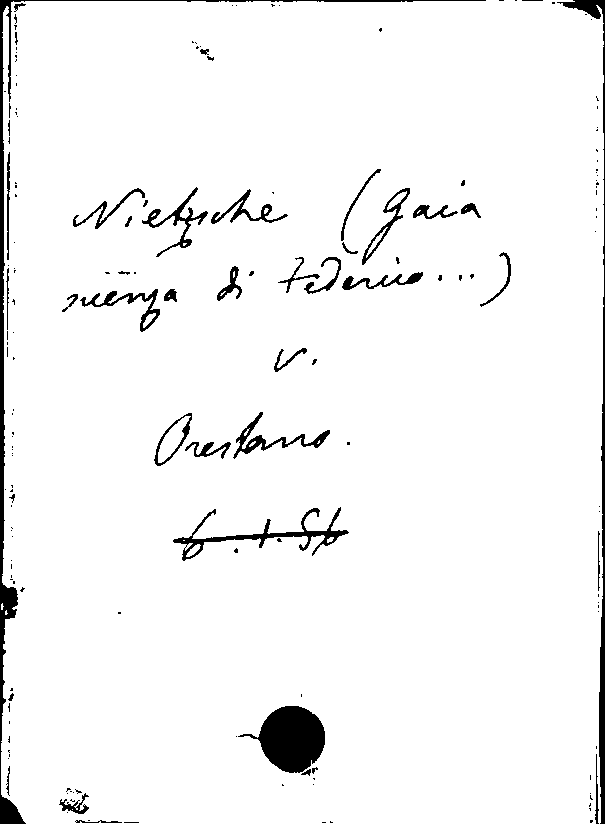 Nietzsche (Gaia
scienza di Federico...)
v.
Orestano.
6.1.56